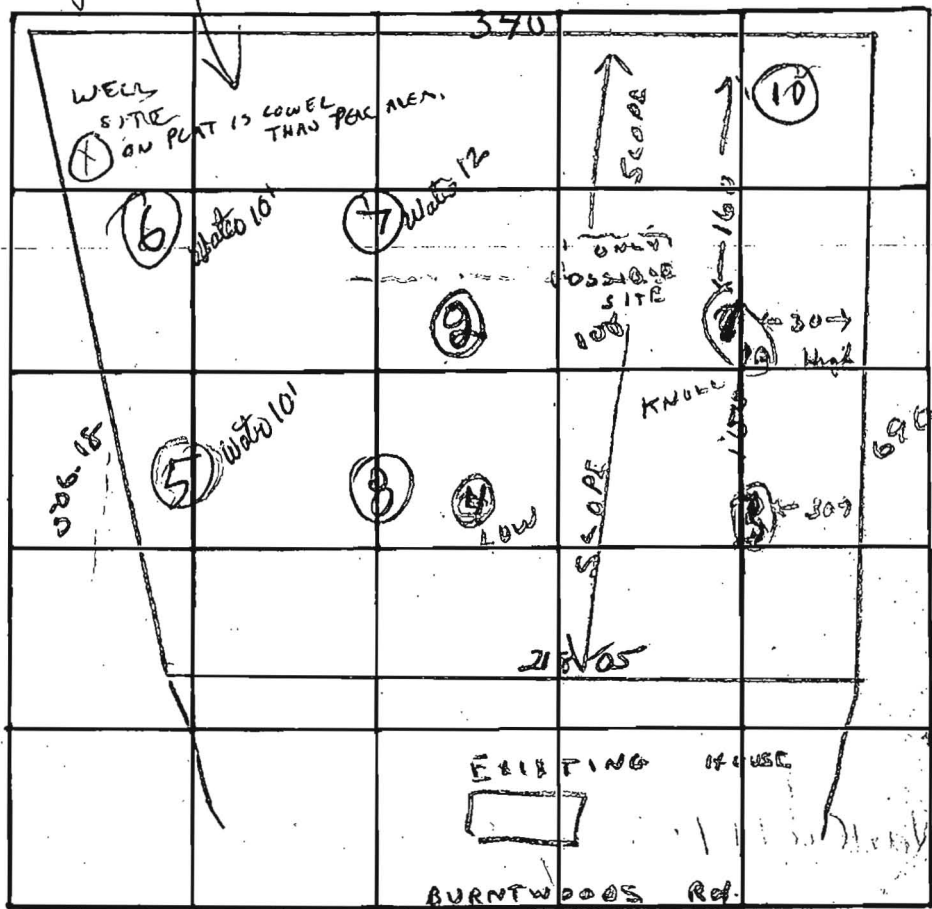 370
WELL
SITE
ON PLAT IS LOWEL
THAN PERC AREA.
X
10
SLOPE
160
6
Water 10'
7
Water 12
ONLY
POSSIBLE
SITE
100
9
30
High
KNOLL
5
Water 10'
8
4
LOW
SLOPE
30'
218.05
EXISTING HOUSE
BURNTWOODS Rd.